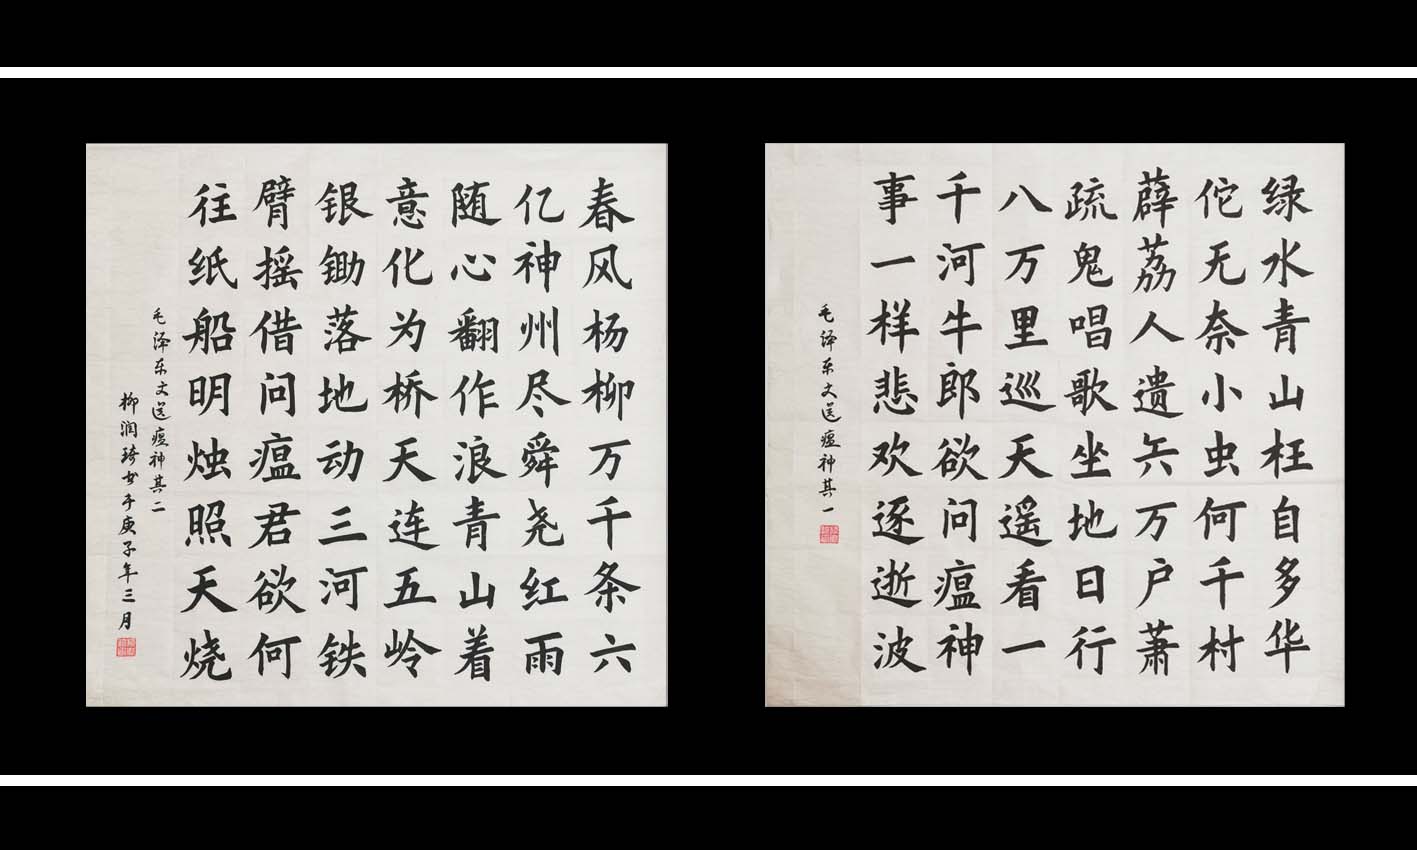 绿水青山枉自多华
佗无奈小虫何千村
薜荔人遗矢万户萧
疏鬼唱歌坐地日行
八万里巡天遥看一
千河牛郎欲问瘟神
事一样悲欢逐逝波
毛泽东文送瘟神其一
春风杨柳万千条六
亿神州尽舜尧红雨
随心翻作浪青山着
意化为桥天连五岭
银锄落地动三河铁
臂摇借问瘟君欲何
往纸船明烛照天烧
毛泽东文送瘟神其二
柳润琦书于庚子年三月